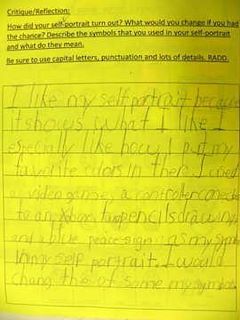 Critique/Reflection:
How did your self-portrait turn out? What would you change if you had
the chance? Describe the symbols that you used in your self-portrait
and what do they mean.
Be sure to use capital letters, punctuation and lots of details. RADD.
I like my self portrait because
it shows what I like I
especially like how I put my
favorite colors in ther. I used
a video game, a controler
to an two pencils drawing
and a blue peace sign as my symb
in my self portrait. I would
chang the of some my symbols.